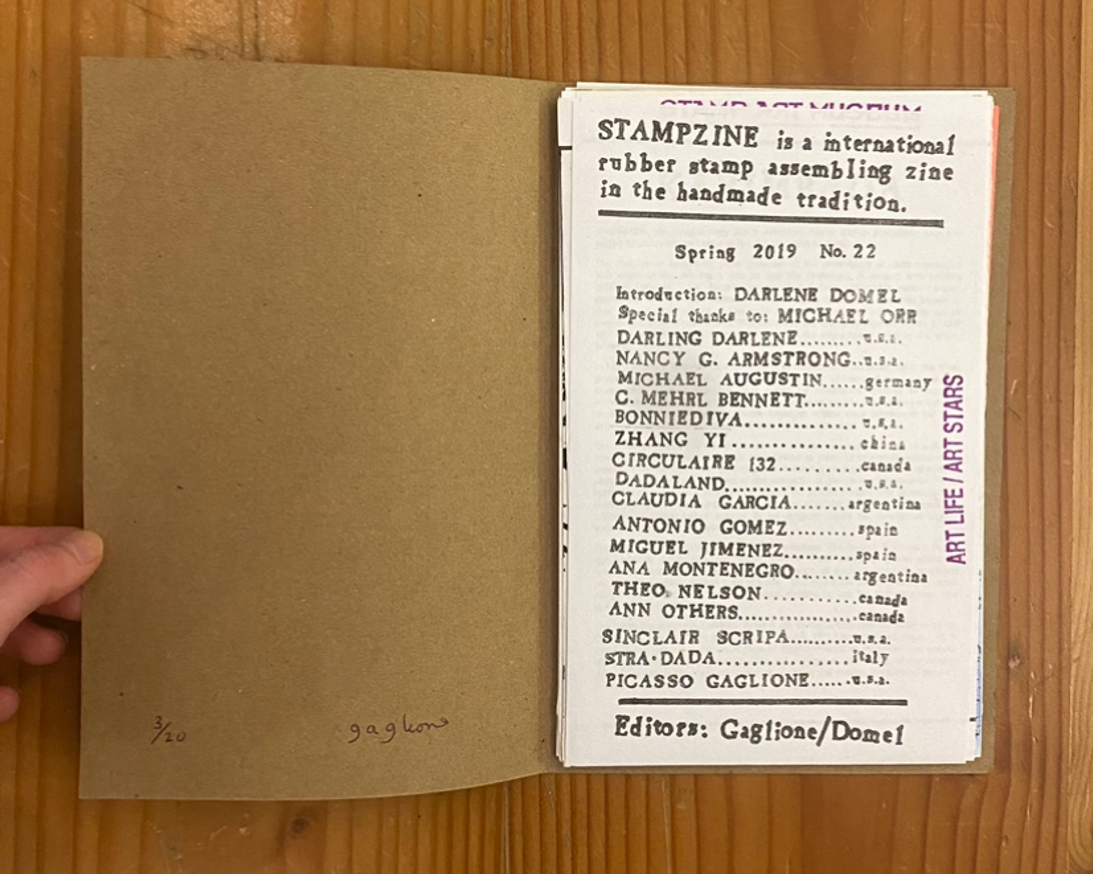 STAMP ART MUSEUM
STAMPZINE is a international
rubber stamp assembling zine
in the handmade tradition.
Spring 2019 No. 22
Introduction: DARLENE DOMEL
Special thanks to: MICHAEL ORR
DARLING DARLENE.........u.s.a.
NANCY G. ARMSTRONG..u.s.a.
MICHAEL AUGUSTIN......germany
C. MEHRL BENNETT........u.s.a.
BONNIEDIVA..............u.s.a.
ZHANG YI...............china
CIRCULAIRE 132.........canada
DADALAND................u.s.a.
CLAUDIA GARCIA.......argentina
ANTONIO GOMEZ.........spain
MIGUEL JIMENEZ..........spain
ANA MONTENEGRO........argentina
THEO. NELSON............canada
ANN OTHERS...............canada
SINCLAIR SCRIPA..........u.s.a.
STRA·DADA................italy
PICASSO GAGLIONE......u.s.a.
Editors: Gaglione/Domel
ART LIFE / ART STARS
3/20 gaglione